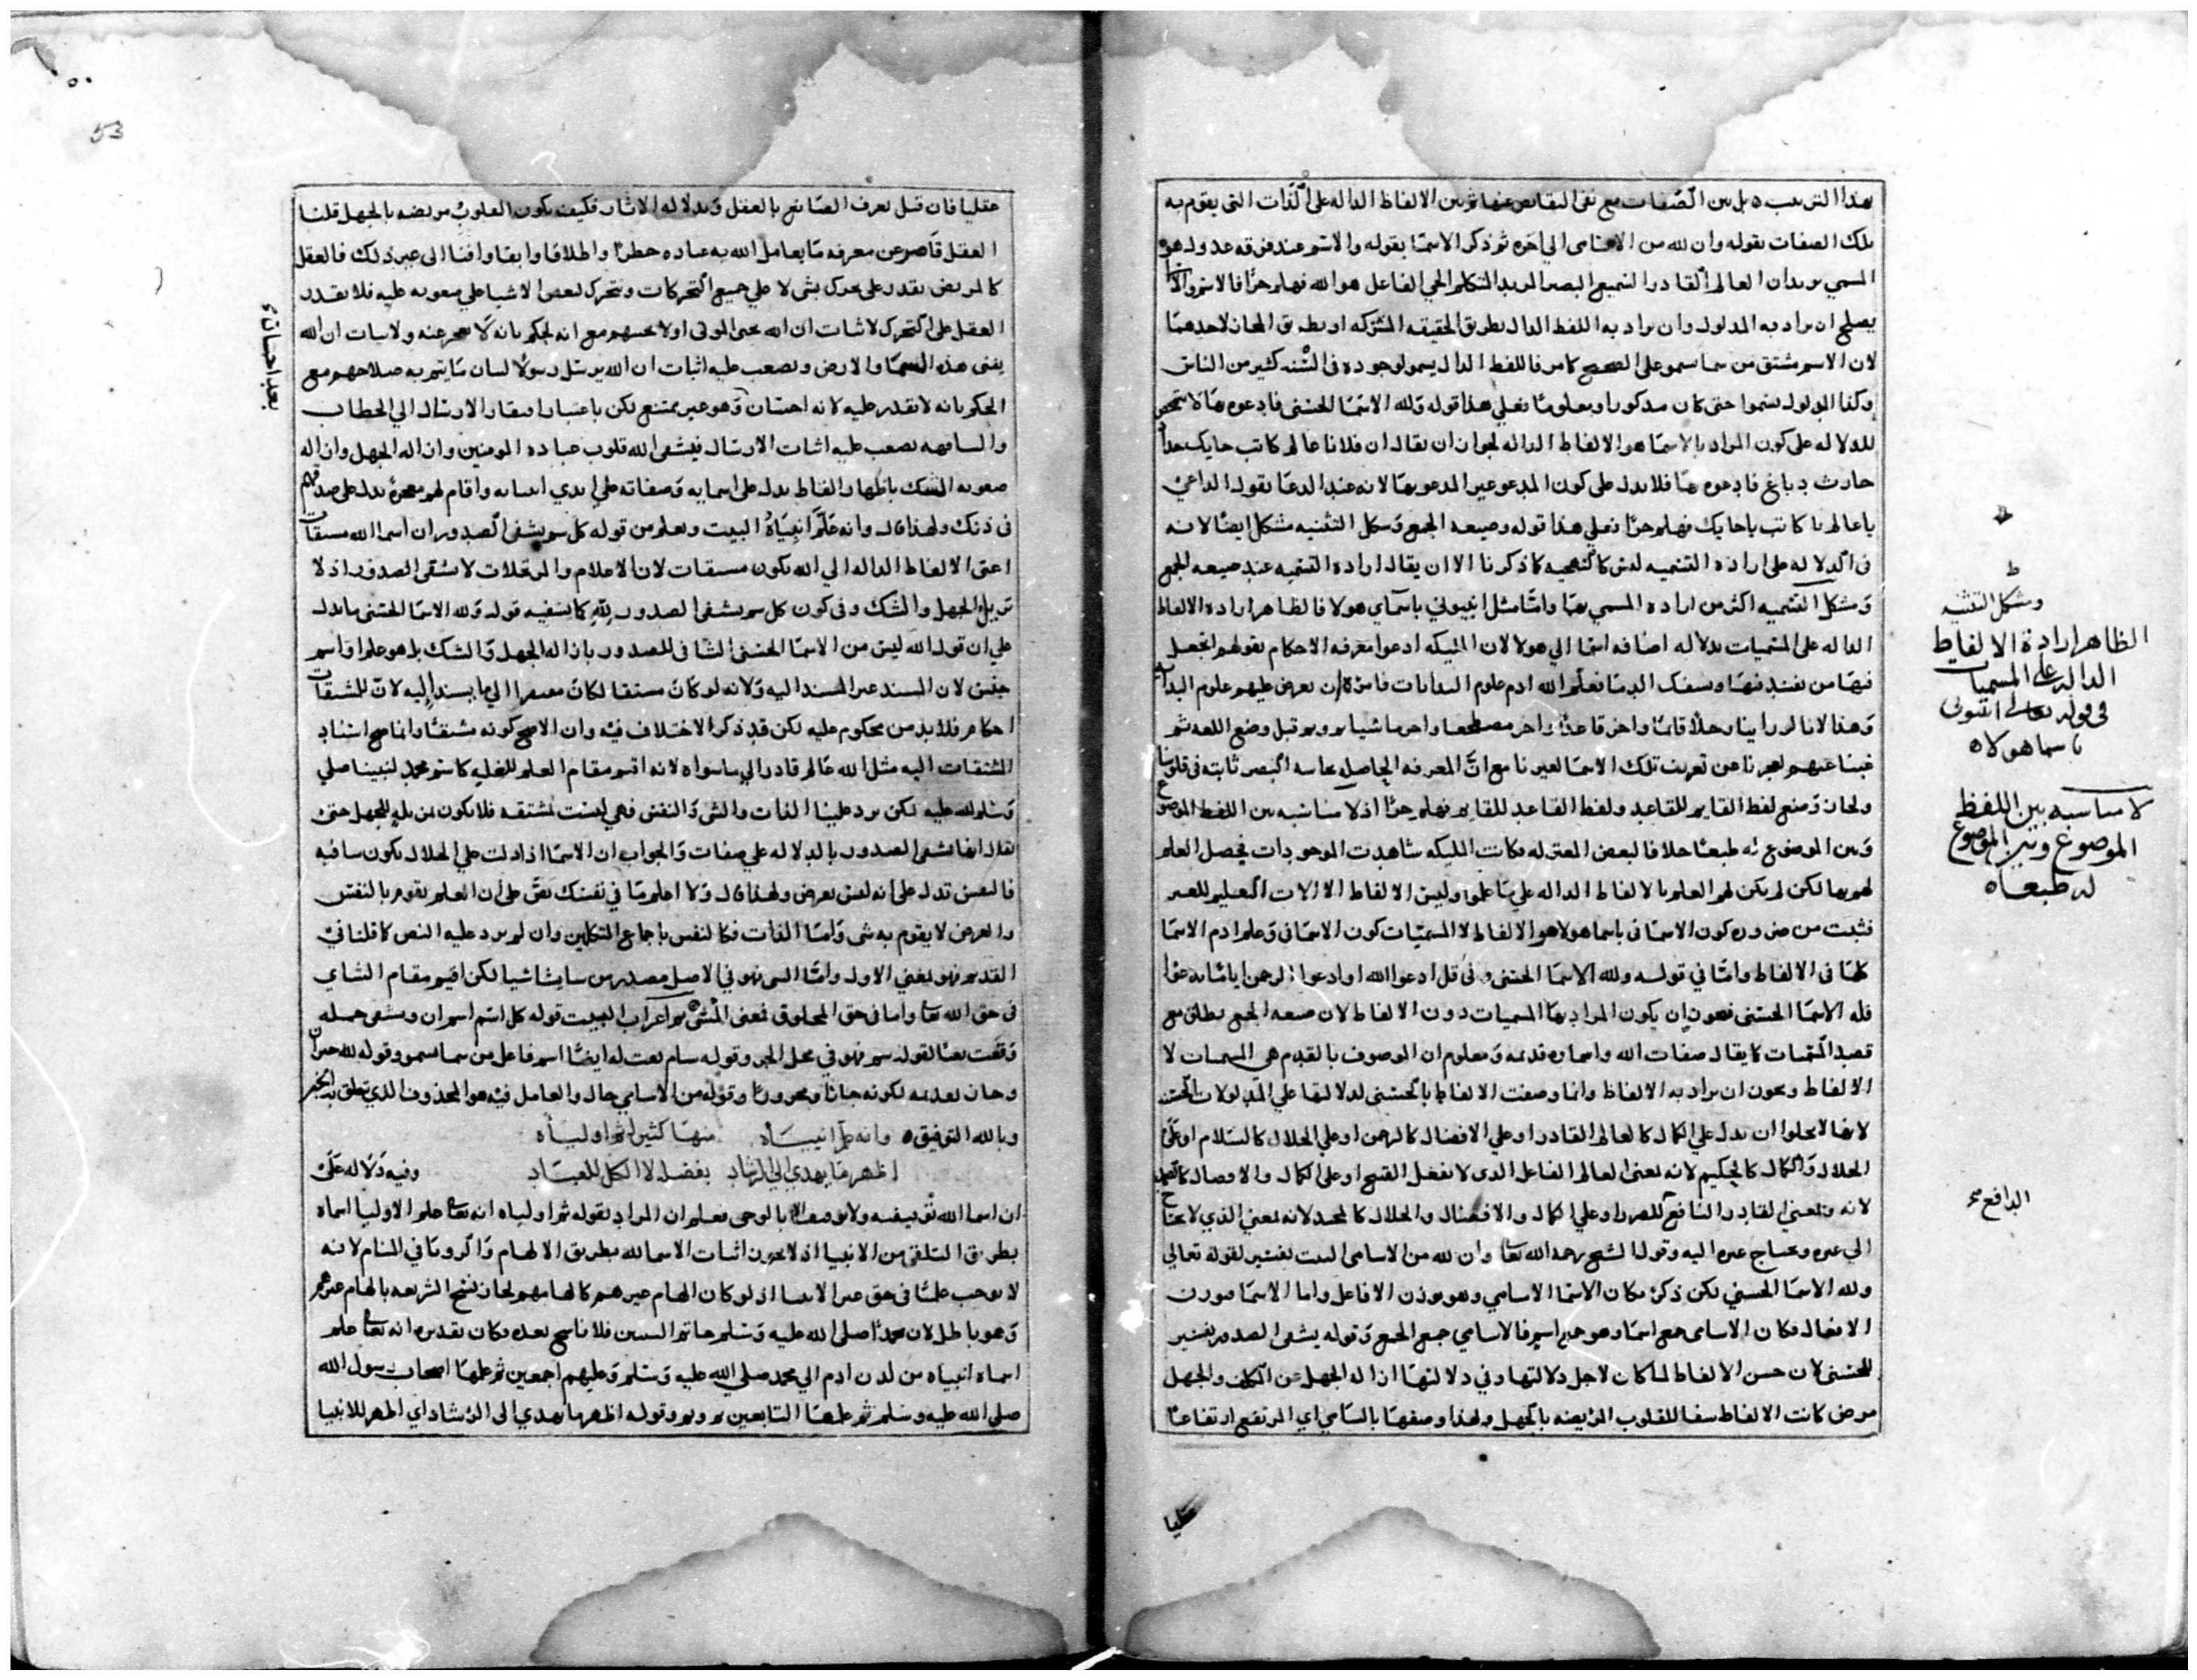 بهذا الترتيب دليل بين الصفات مع نفي النقائص عنها ثم بين الالفاظ الداله على الذات التى يقوم به
تلك الصفات بقوله وان لله من الاسامى الي اخره ثم ذكر الاسما بقوله والاسم عند فرقه عدول هو
المسمي يريد ان العالم القادر السميع البصير المريد المتكلم الحي الفاعل هو الله فهلم جرا فالاسم والا
يصلح ان يراد به المدلول وان يراد به اللفظ الدال بطريق الحقيقه المشتركه او بطريق المجاز لاحدهما
لان الاسم مشتق من سما يسمو على الصحيح كما مر فاللفظ الدال يسمو لوجوده فى السنه كثير من الناس
وكذا المدلول يسموا حتى كان مذكورا ومعلوما فعلي هذا قوله ولله الاسما الحسنى فادعوه بها لا
للدلاله على كون المراد بالاسما هو الالفاظ الداله لجواز ان يقال ان فلانا عالم كاتب حايك
حارث دباغ فادعوه بها فلا يدل على كون المدعو غير المدعو بها لانه عند الدعا يقول الداعي
يا عالم يا كاتب يا حايك فهلم جرا فعلي هذا قوله وصيغه الجمع وشكل التثنيه مشكل ايضا لانه
فى الدلاله على اراده التسميه ليس كما ذكرنا الا ان يقال اراده التسميه عند صيغه الجمع
وشكل التسميه اكثر من اراده المسمي بها واما مثل انبيوني باسماي هولا فالظاهر اراده الالفاظ
الداله على المسميات بدلاله اضافه اسما الي هولا لان المليكه ادعوا معرفه الاحكام بقولهم اتجعل
فيها من يفسد فيها ويسفك الدما فعلم الله ادم علوم البدايات فامره ان يعرض عليهم علوم
وهذا لانا لو راينا رجلا قايما واخر قاعدا واخر مضطجعا واخر ماشيا قبل وضع اللغه ثم
غبنا عنهم لعجزنا عن تعريف تلك الاسما لغيرنا مع ان المعرفه الحاصله بحاسه البصر ثابته فى
ولجاز وضع لفظ القايم للقاعد ولفظ القاعد للقايم فهلم جرا اذ لا مناسبه بين اللفظ الموضوع
وبين الموضوع له طبعا خلافا لبعض المعتزله فكانت المليكه شاهدت الموجودات فحصل العلم
لهم بها لكن لم يكن لهم العلم بالالفاظ الداله علي ما علموا وليس الالفاظ الا الات التعليم للغير
فثبت من ضروره كون الاسما فى باسما هولا هو الالفاظ لا المسميات كون الاسما فى وعلم ادم الاسما
كلها فى الالفاظ واما في قوله ولله الاسما الحسنى وفى قل ادعوا الله او ادعوا الرحمن ايا ما تدعوا
فله الاسما الحسنى فيجوز ان يكون المراد بها المسميات دون الالفاظ لان صيغه الجمع يطلق مع
قصد المسميات كما يقال صفات الله واسماوه قديمه ومعلوم ان الموصوف بالقدم هى المسميات لا
الالفاظ ويجوز ان يراد به الالفاظ وانما وصفت الالفاظ بالحسنى لدلالتها علي المدلولات
لانها لا يخلوا ان يدل علي الكمال كالعالم القادر او علي الافضال كالرحمن او علي الجلال كالسلام او على
الجلال والكمال كالحكيم لانه بمعنى العالم الفاعل الذى لا يفعل القبيح او على الكمال والافضال
لانه بمعني القادر النافع للضرر او علي الكمال والافضال والجلال كالمجيد لانه بمعني الذي لا يحتاج
الي غيره ويحتاج غيره اليه وقول الشيخ رحمه الله تعا وان لله من الاسامى البيت تفسير لقوله تعالى
ولله الاسما الحسني لكن ذكر مكان الاسما الاسامي وهو بوزن الافاعل واما الاسما بوزن
الافعال فكان الاسامى جمع اسما وهو جمع اسم فالاسامي جمع الجمع وقوله يشفى الصدور تفسير
للحسنى لان حسن الالفاظ لما كان لاجل دلالتها وفي دلالتها ازاله الجهل عن والجهل
مرض كانت الالفاظ شفا للقلوب المريضه بالجهل ولهذا وصفها بالسامي اي المرتفع ارتفاعا
ط
وشكل التثنيه
الظاهر ارادة الالفاظ
الداله على المسميات
فى قوله تعالى انبوني
باسما هولاه
لا مناسبه بين اللفظ
الموضوع وبين الموضوع
له طبعاه
الدافع
عقليا
53
عقليا فان قيل تعرف الصانع بالعقل وبدلاله الاثار فكيف يكون القلوب مريضه بالجهل قلنا
العقل قاصر عن معرفه ما يعامل الله به عباده حظرا واطلاقا وابقا وافنا الى غير ذلك فالعقل
كالمريض يقدر على تحرك شى لا علي جميع التحركات ويتحرك لبعض الاشيا على صعوبه عليه فلا يقدر
العقل على التحرك لاثبات ان الله يحيى الموتى او لا يحييهم مع انه يحكم بانه لا يعجز عنه ولاثبات ان الله
يفنى هذه السما والارض ويصعب عليه اثبات ان الله يرسل رسولا لبيان ما يتم به صلاحهم مع
الحكم بانه لا يقدر عليه لانه احسان وهو غير ممتنع لكن باعتبار افتقار الارسال الي الخطاب
والمشافهه يصعب عليه اثبات الارسال فيشفى الله قلوب عباده المومنين وازاله الجهل وازاله
صعوبه الشك باظهار الفاظ يدل على اسمايه وصفاته علي ايدي انبيايه واقام لهم معجزة يدل على صدقهم
فى ذلك ولهذا قال وانه علم انبياه البيت ويعلم من قوله كل سم يشفى الصدور ان اسما الله مشتقات
اعنى الالفاظ الداله الي الله يكون مشتقات لان الاعلام والمرتجلات لا يشفى الصدور اذ لا
تزيل الجهل والشك وفى كون كل سم يشفى الصدور لله كما يقتضيه قوله ولله الاسما الحسنى ما يدل
علي ان قول الله ليس من الاسما الحسنى الشافى للصدور بازاله الجهل والشك بل هو علم او اسم
جنس لان المسند غير المسند اليه ولانه لو كان مشتقا لكان مفتقرا الي ما يسند اليه لان للمشتقات
احكام فلا بد من محكوم عليه لكن قد ذكر الاختلاف فيه وان الاصح كونه مشتقا وانما صح اسناد
المشتقات اليه مثل الله عالم قادر الي ما سواه لانه اقيم مقام العلم للغلبه كاسم محمد لنبينا صلي
وسلم الله عليه لكن يرد علينا الذات والشي والنفس فهي ليست مشتقه فلا يكون مزيله للجهل حتى
يقال انها تشفى الصدور بالدلاله علي صفات والجواب ان الاسما اذا دلت علي الجلال يكون شافيه
فالنفس تدل على انه ليس بعرض ولهذا قال ولا اعلم ما في نفسك نص على ان العلم يقوم بالنفس
والعرض لا يقوم به شى واما الذات فكالنفس باجماع المتكلمين وان لم يرد عليه النص كما قلنا في
القديم فهو بمعني الاول واما الشى فهو في الاصل مصدر من شا يشا شيا لكن اقيم مقام الشاى
فى حق الله تعا واما فى حق المخلوق فمعنى المشى ثم اعراب البيت قوله كل اسم اسم ان ويشفى جمله
وقعت نعتا لقوله سم فهو في محل الجر وقوله سام نعت له ايضا اسم فاعل من سما يسمو وقوله لله خبر ان
وجاز تقديمه لكونه جارا ومجرورا وقوله من الاسامي حال والعامل فيه هو المحذوف الذي يتعلق به الخبر
وبالله التوفيق ه وانه علم انبياه منها كثيرا ثم اولياه
اظهر ما يهدي الي الرشاد بفضله لا الكل للعباد وفيه دلاله على
ان اسما الله توقيفيه ولا توقيف الا بالوحى فعلم ان المراد بقوله ثم اولياه انه تعا علم الاوليا اسماه
بطريق التلقى من الانبيا اذ لا يجوز اثبات الاسما لله بطريق الالهام والرويا في المنام لانه
لا يوجب علما فى حق غير الانبيا اذ لو كان الهام غيرهم كالهامهم لجاز نسخ الشريعه بالهام غيرهم
وهو باطل لان محمدا صلى الله عليه وسلم خاتم النبيين فلا ناسخ بعده فكان تقديره انه تعا علم
اسماه انبياه من لدن ادم الي محمد صلي الله عليه وسلم وعليهم اجمعين ثم علمها اصحاب رسول الله
صلى الله عليه وسلم ثم علمها التابعين وقوله اظهر ما يهدي الى الرشاد اي اظهر للانبيا
بعد احسان